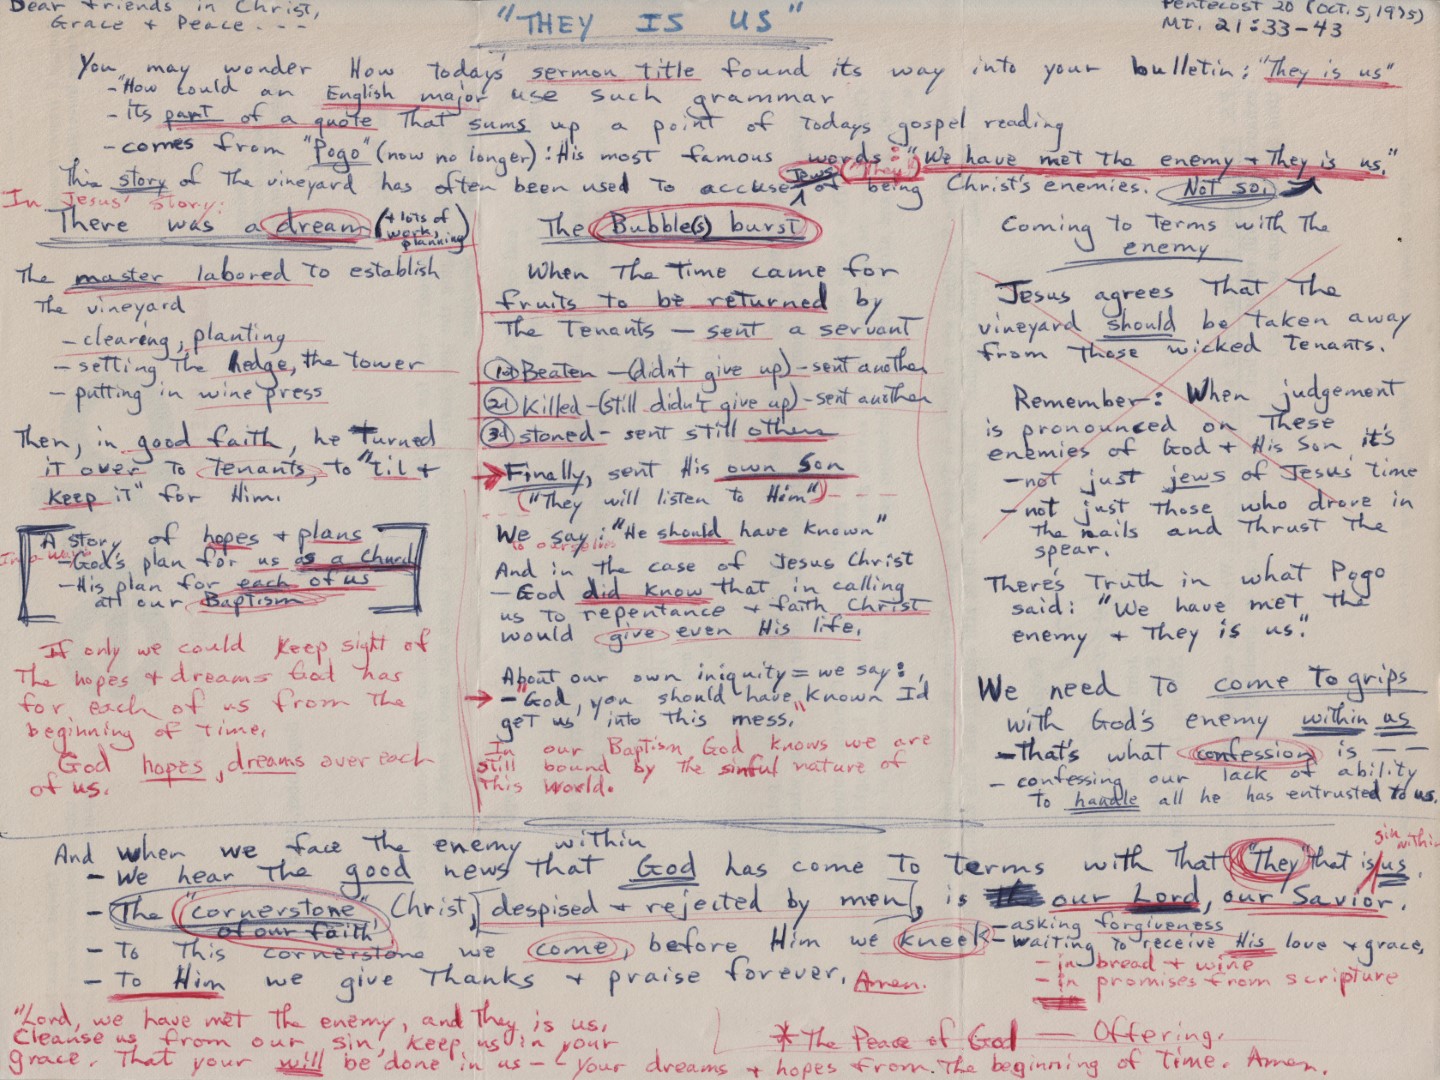 Dear friends in Christ,
Grace + Peace. - -
"THEY IS US"
Pentecost 20 (Oct. 5, 1975)
Mt. 21:33-43
You may wonder How Todays sermon title found its way into your bulletin: "They is us"
- "How could an English major use such grammar
- its part of a quote That sums up a point of Todays gospel reading
- comes from "Pogo" (now no longer): His most famous words: "We have met the enemy + They is us."
This story of The vineyard has often been used To accuse Jews ("They") of being Christ's enemies. Not so.
In Jesus' story:
There was a dream (+ lots of work, planning)
The master labored To establish
The vineyard
- clearing, planting
- setting The hedge, the Tower
- putting in wine press
Then, in good faith, he Turned
it over To Tenants, to "til +
keep it" for Him.
A story of hopes + plans
In a way
- God's plan for us as a church
- His plan for each of us
at our Baptism
If only we could keep sight of
The hopes + dreams God has
for each of us from The
beginning of Time.
God hopes, dreams over each
of us.
The Bubble(s) burst
When The Time came for
fruits to be returned by
The Tenants - sent a servant
1st Beaten - (didn't give up) - sent another
2d Killed - (still didn't give up) - sent another
3d stoned - sent still others
Finally, sent His own Son
("They will listen to Him") - - - -
We say: "He should have known"
to ourselves
And in The case of Jesus Christ
- God did know that in calling
us To repentance + faith Christ
would give even His life.
About our own iniquity = we say:
- "God, you should have known I'd
get us into this mess."
In our Baptism God knows we are
still bound by The sinful nature of
This world.
Coming to Terms with The
enemy
Jesus agrees That The
vineyard should be Taken away
from Those wicked Tenants.
Remember: When judgement
is pronounced on These
enemies of God + His Son it's
- not just jews of Jesus' time
- not just Those who drove in
The nails and Thrust The
spear.
There's Truth in what Pogo
said: "We have met the
enemy + They is us."
We need To come To grips
with God's enemy within us
- That's what confession is - - -
- confessing our lack of ability
To handle all he has entrusted to us.
And when we face The enemy within
- We hear The good news That God has come To Terms with That "They" that is us.
sin within
- The "cornerstone" Christ, [despised + rejected by men], is our Lord, our Savior.
of our faith
- To This cornerstone we come, before Him we kneel
- asking forgiveness
- waiting To receive His love + grace,
- in bread + wine
- in promises from scripture
- To Him we give Thanks + praise forever. Amen.
"Lord, we have met The enemy, and They is us.
Cleanse us from our sin, keep us in your
grace. That your will be done in us - your dreams + hopes from The beginning of Time. Amen.
* The Peace of God — Offering.